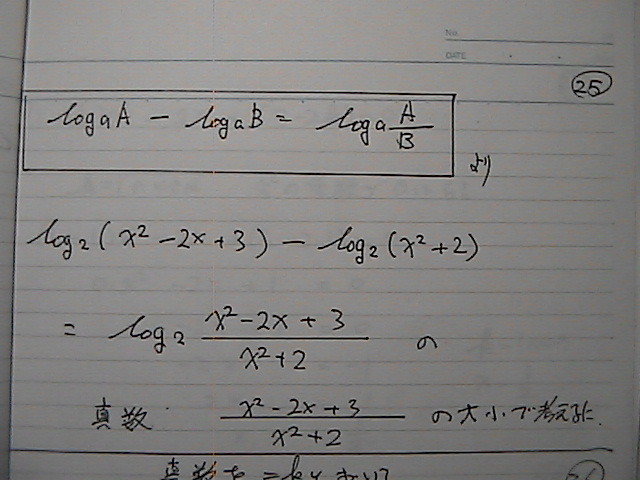 No.
DATE
25
logaA - logaB = loga A/B
より
log₂(x²-2x+3) - log₂(x²+2)
= log₂ (x²-2x+3)/(x²+2) の
真数 (x²-2x+3)/(x²+2) の大小で考える